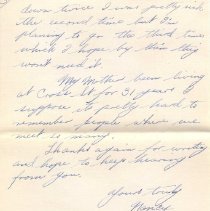 down twice I was pretty sick
the second time but I'm
planning to go the third time
which I hope by then they
won't need it.
My Mother been living
at Crooks St for 31 years I
suppose its pretty hard to
remember people where we
meet so many.
Thanks again for writing
and hope to keep hearing
from you.
Yours truly